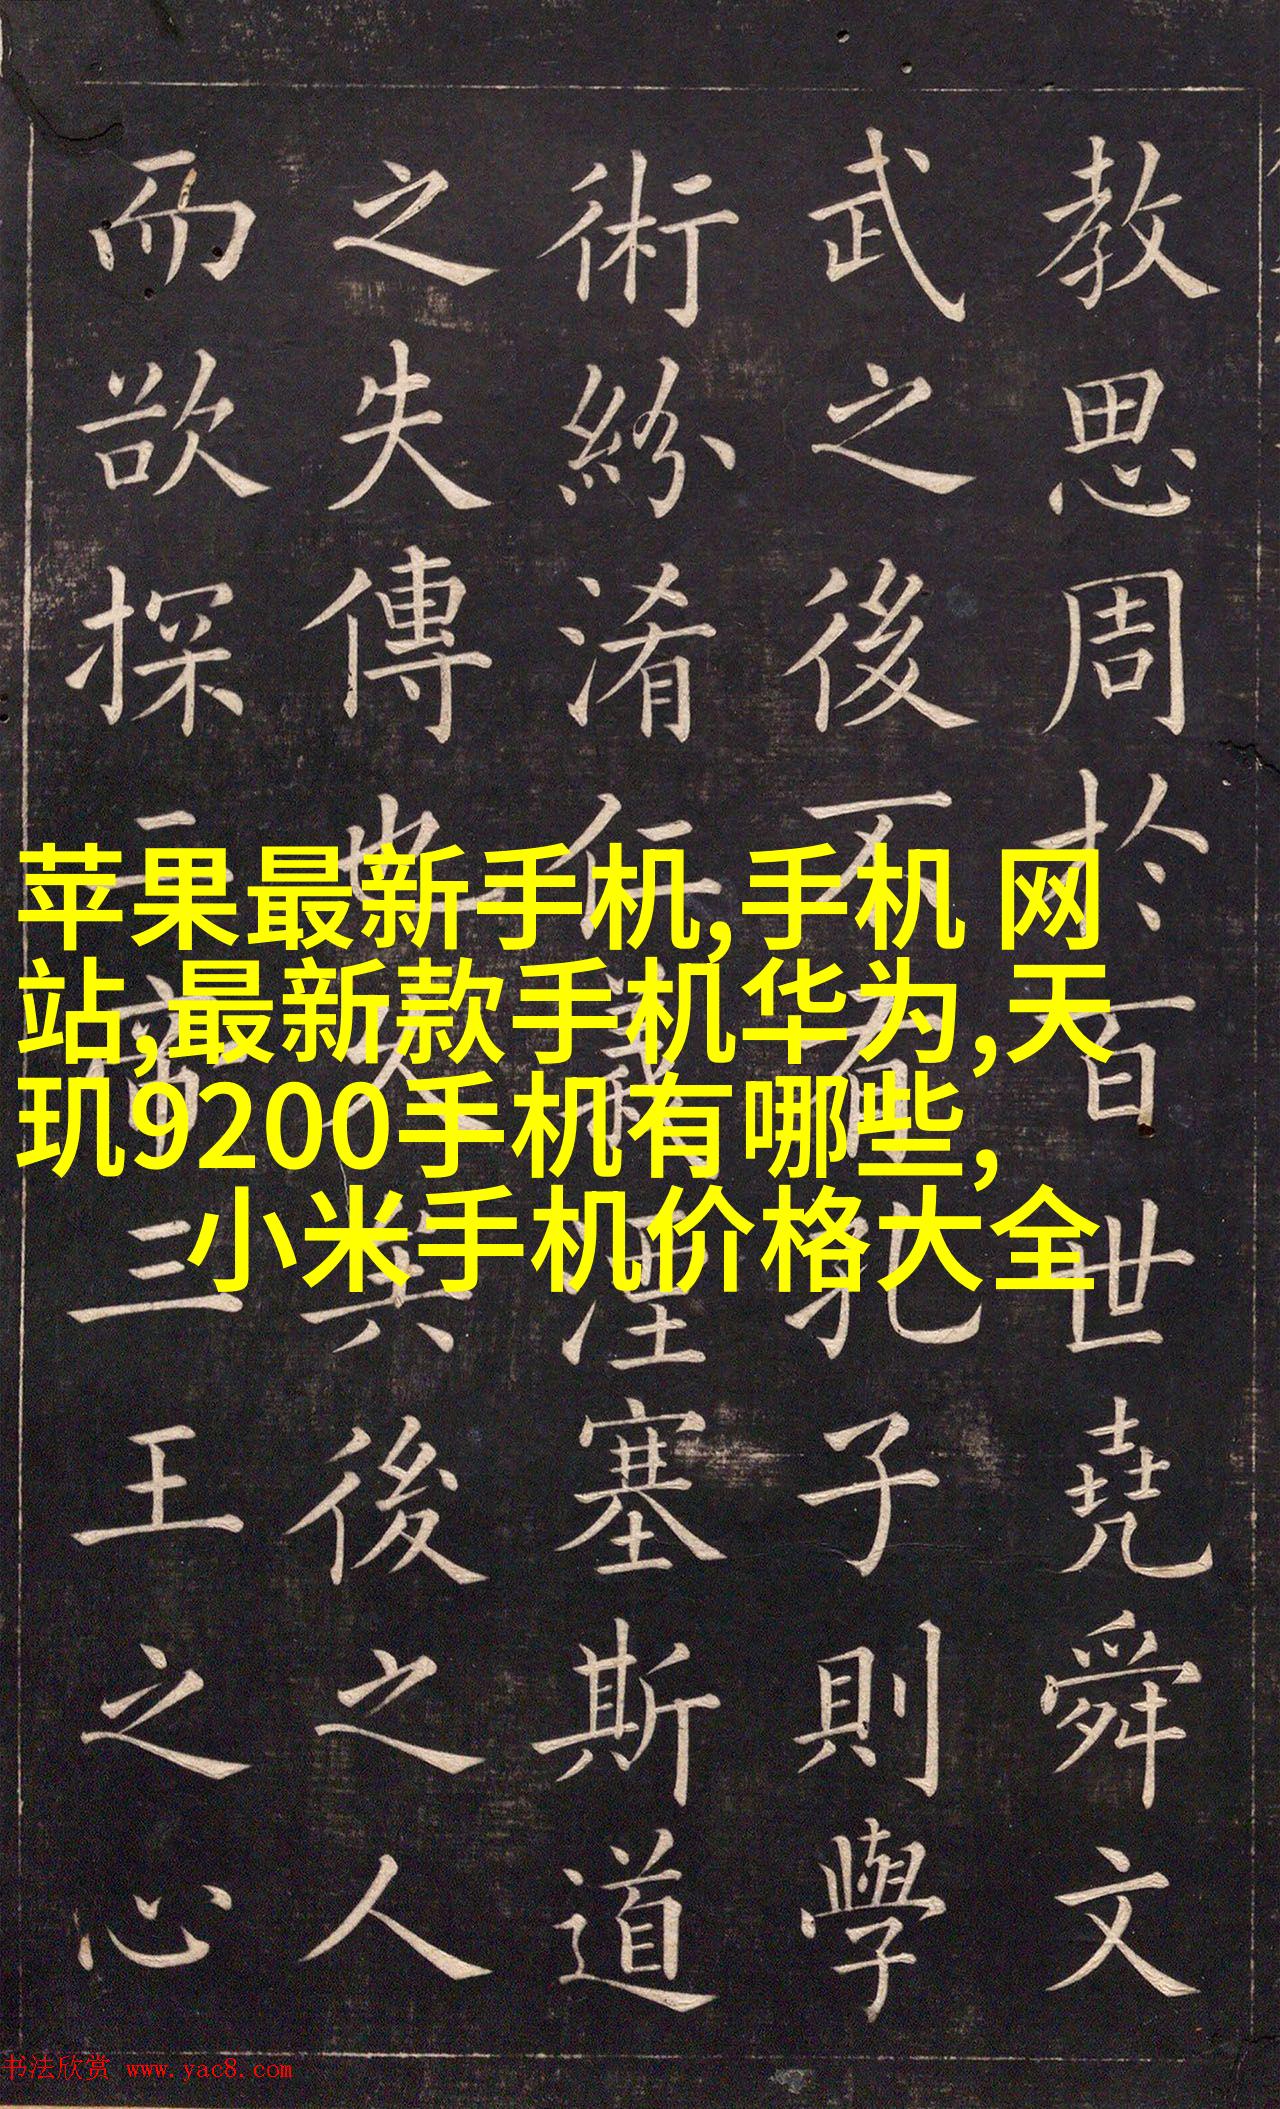 教思周於百世堯舜文
武之後不有孔子則學
術紛淆仁義湮塞斯道
之失傳也久矣後之人
而欲探二帝三王之心
苹果最新手机,手机 网
站,最新款手机华为,天
玑9200手机有哪些,
小米手机价格大全
书法欣赏 www.yac8.com